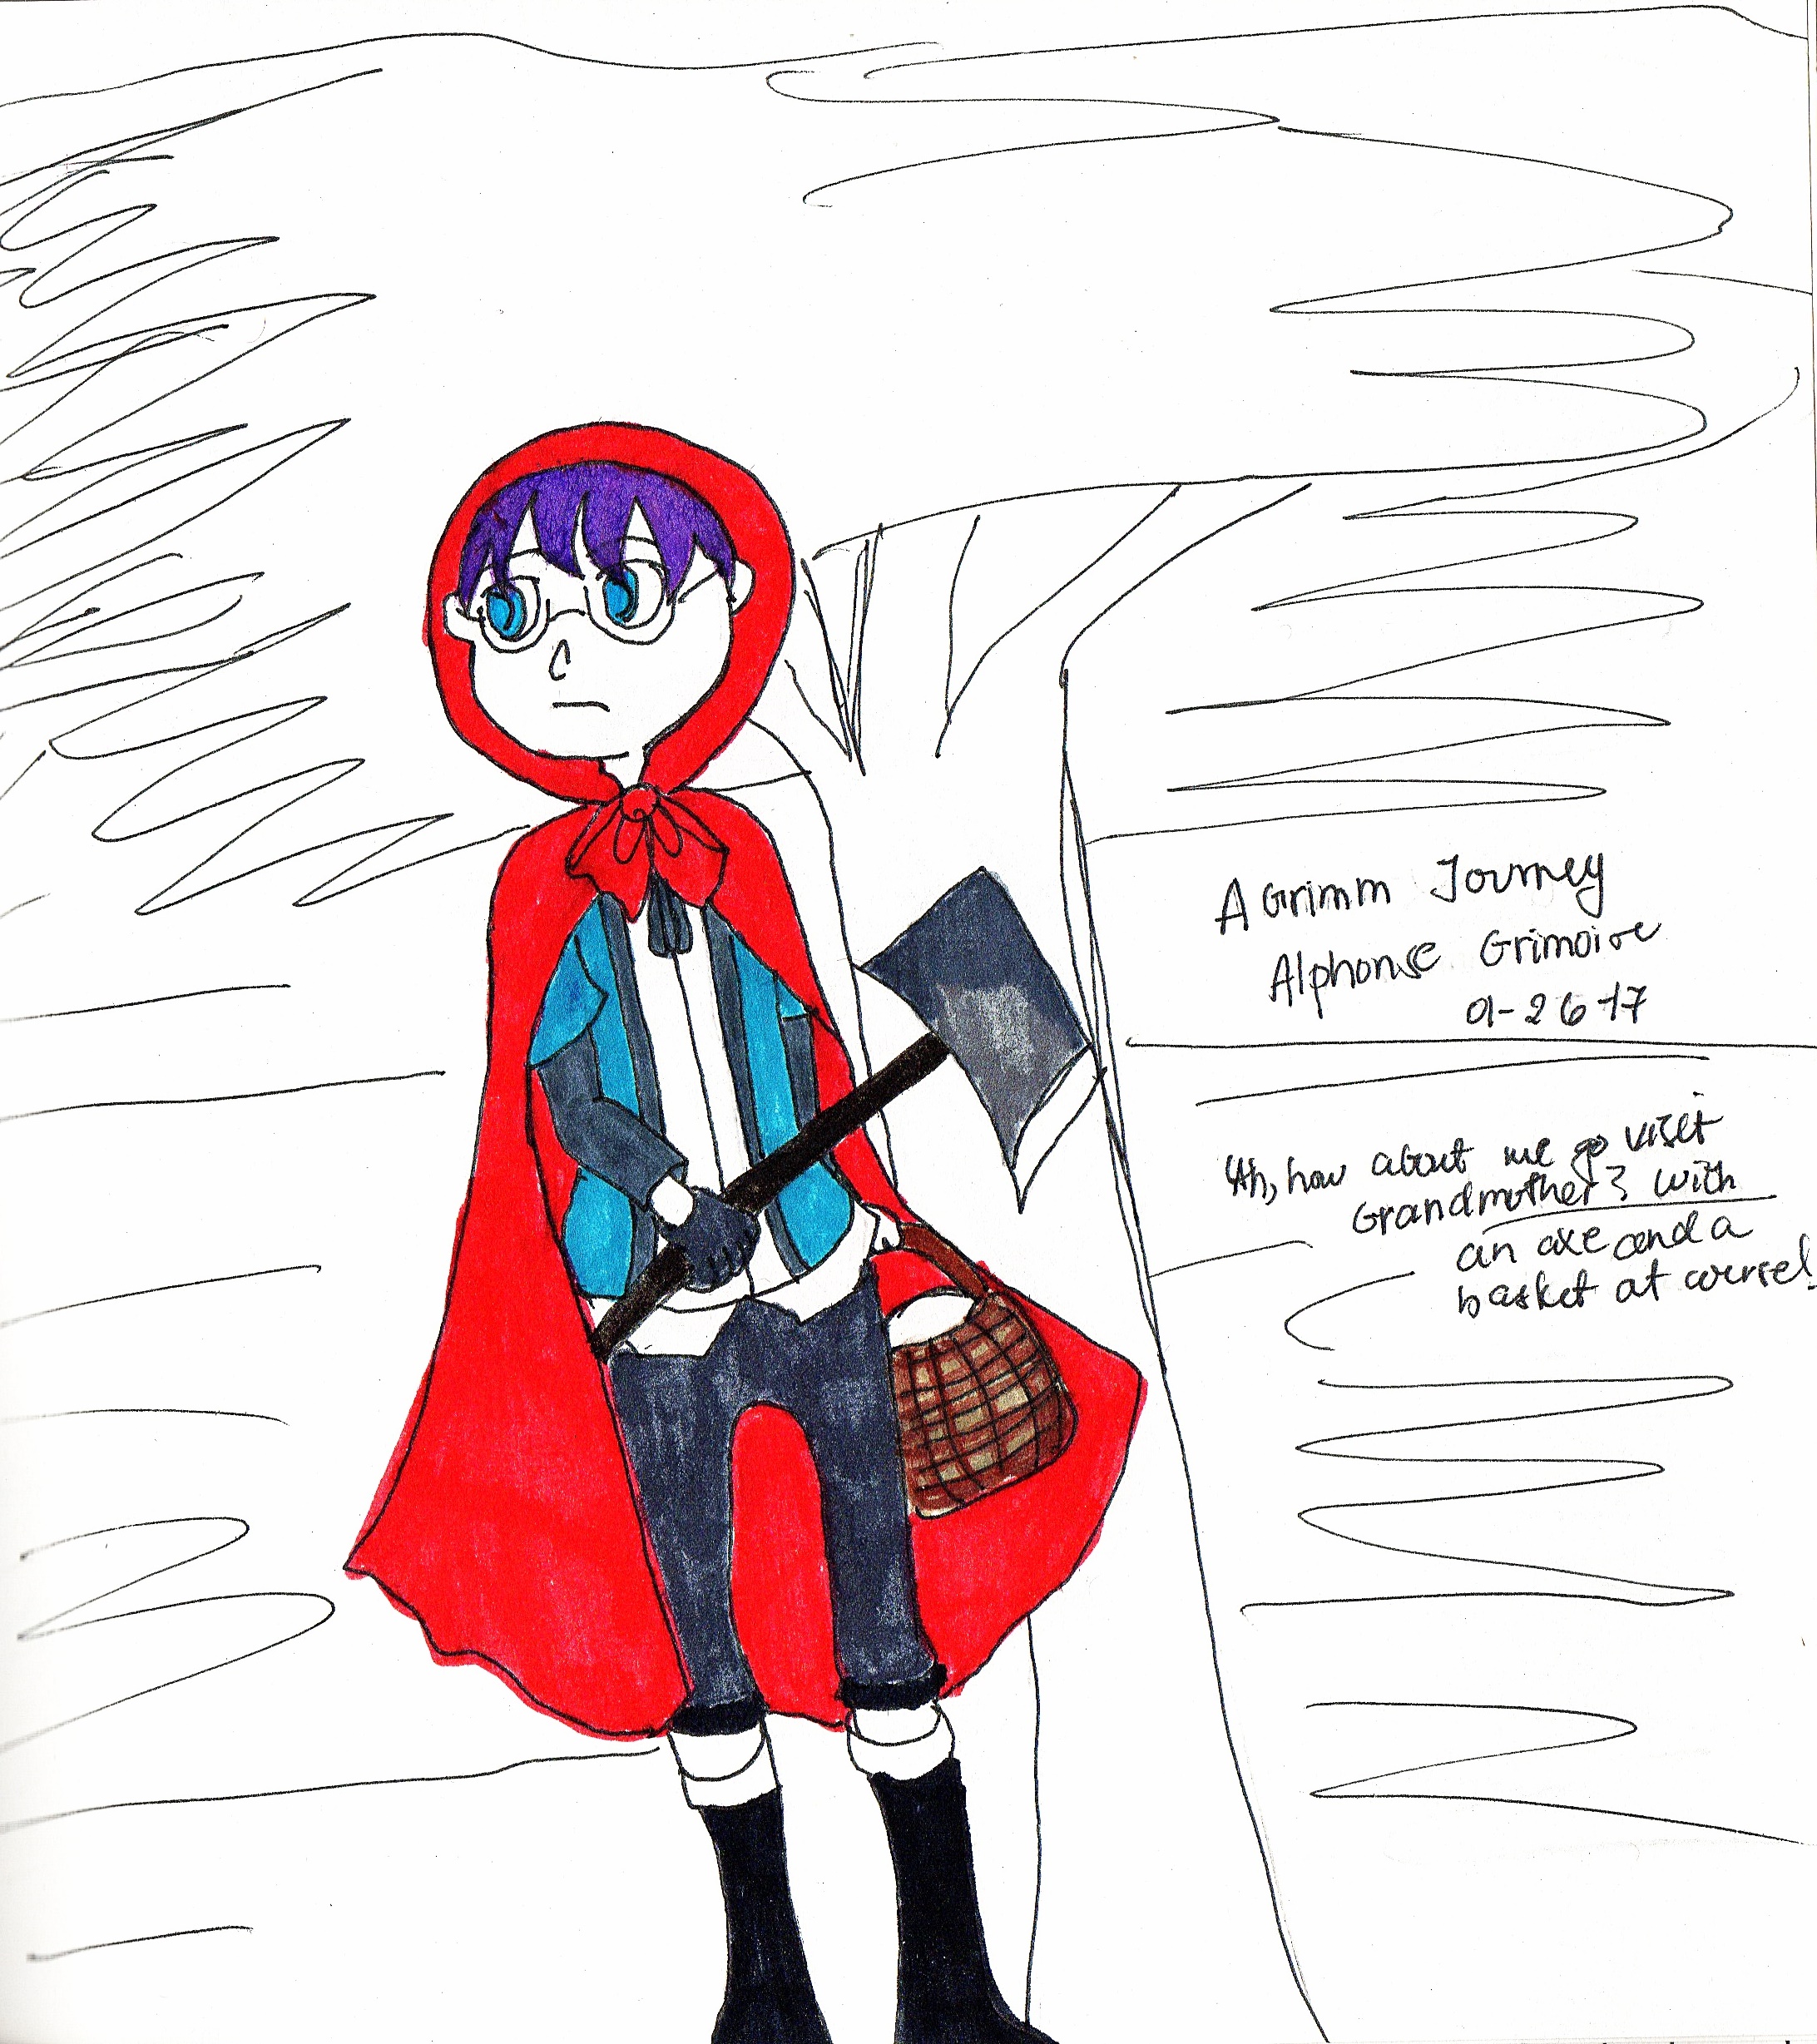 A Grimm Journey
Alphonse Grimoire
01-26-17
Ah, how about me go visit
Grandmother? With
an axe and a
basket at course!